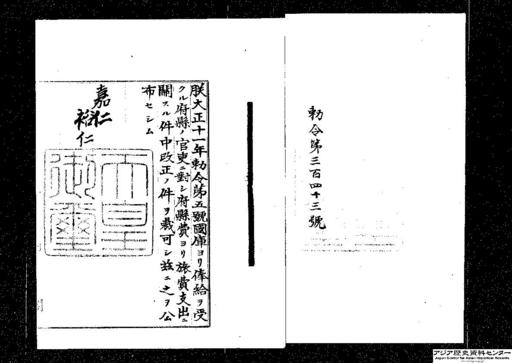 勅令第三百四十三號
朕大正十一年勅令第五號國庫ヨリ俸給ヲ受
クル府縣ノ官吏ニ對シ府縣費ヨリ旅費支出ニ
關スル件中改正ノ件ヲ裁可シ茲ニ之ヲ公
布セシム
嘉仁
裕仁
天皇
御璽
アジア歴史資料センター
Japan Center for Asian Historical Records